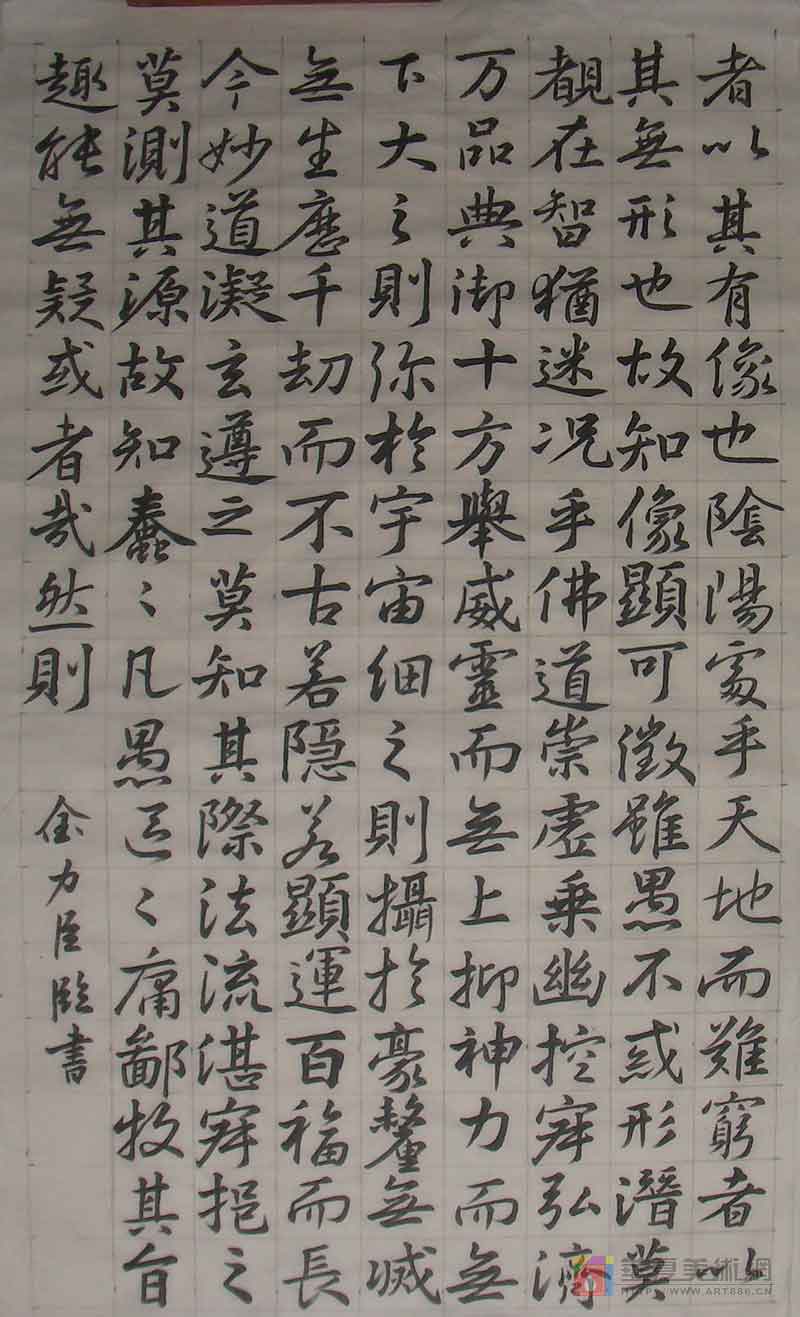 者以其有像也陰陽處乎天地而難窮者以
其無形也故知像顯可徵雖愚不惑形潛莫
覩在智猶迷况乎佛道崇虛乘幽控寂弘濟
万品典御十方舉威靈而無上抑神力而無
下大之則弥於宇宙細之則攝於豪釐無滅
無生歷千劫而不古若隱若顯運百福而長
今妙道凝玄遵之莫知其際法流湛寂挹之
莫測其源故知蠢〻凡愚區〻庸鄙投其旨
趣能無疑或者哉然則
金力臣臨書
華夏美術網
HTTP://WWW.ART886.CN